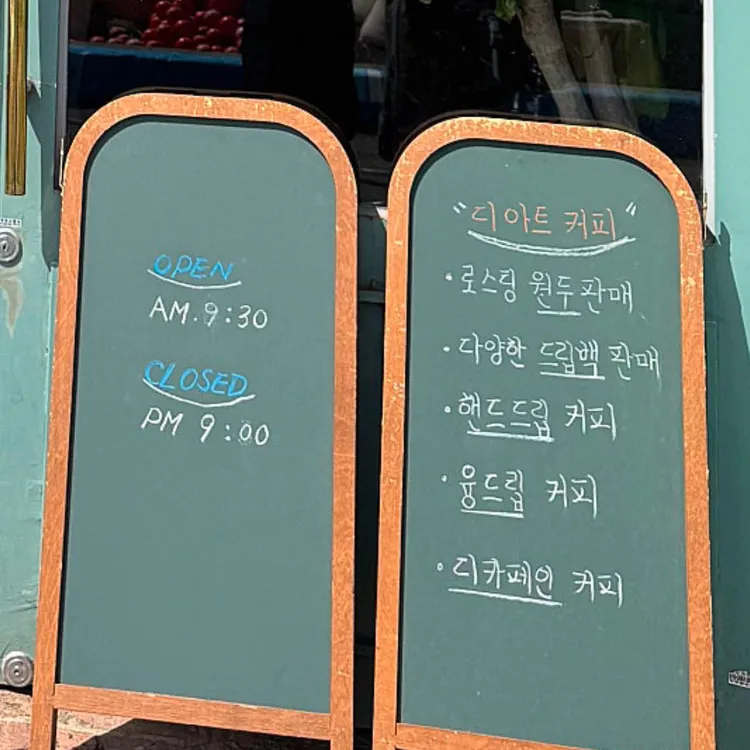 OPEN
AM. 9:30
CLOSED
PM 9:00
"디아트 커피"
· 로스팅 원두 판매
· 다양한 드립백 판매
· 핸드드립 커피
· 융드립 커피
· 디카페인 커피